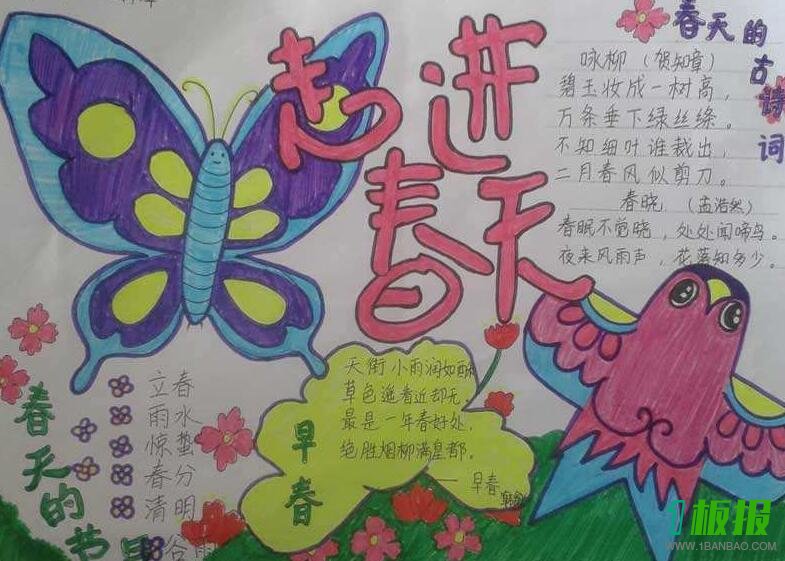 走进春天
春天的古诗词
咏柳（贺知章）
碧玉妆成一树高，
万条垂下绿丝绦。
不知细叶谁裁出，
二月春风似剪刀。
春晓（孟浩然）
春眠不觉晓，处处闻啼鸟。
夜来风雨声，花落知多少。
早春
天街小雨润如酥
草色遥看近却无。
最是一年春好处，
绝胜烟柳满皇都。
——早春
春天的节
立春
雨水
惊蛰
春分
清明
谷雨
1板报
WWW.1BANBAO.COM